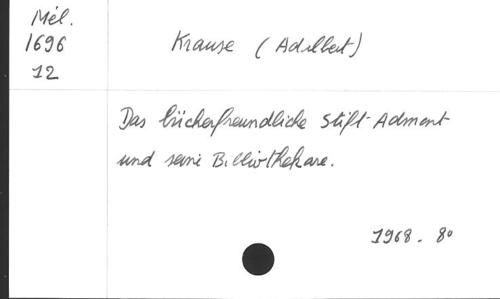 Mél.
1696
12
Krause (Adalbert)
Das bücherfreundliche Stift Admont
und seine Bibliothekare.
1968. 8°